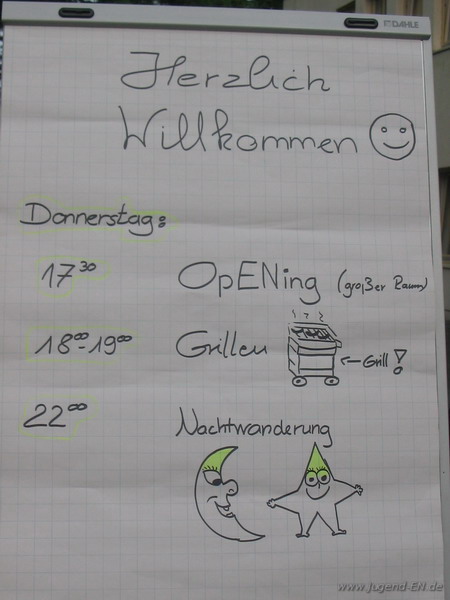 DAHLE
Herzlich
Willkommen
Donnerstag:
17³⁰ OpENing (großer Raum)
18⁰⁰-19⁰⁰ Grillen
← Grill!
22⁰⁰ Nachtwanderung
www.Jugend-EN.de